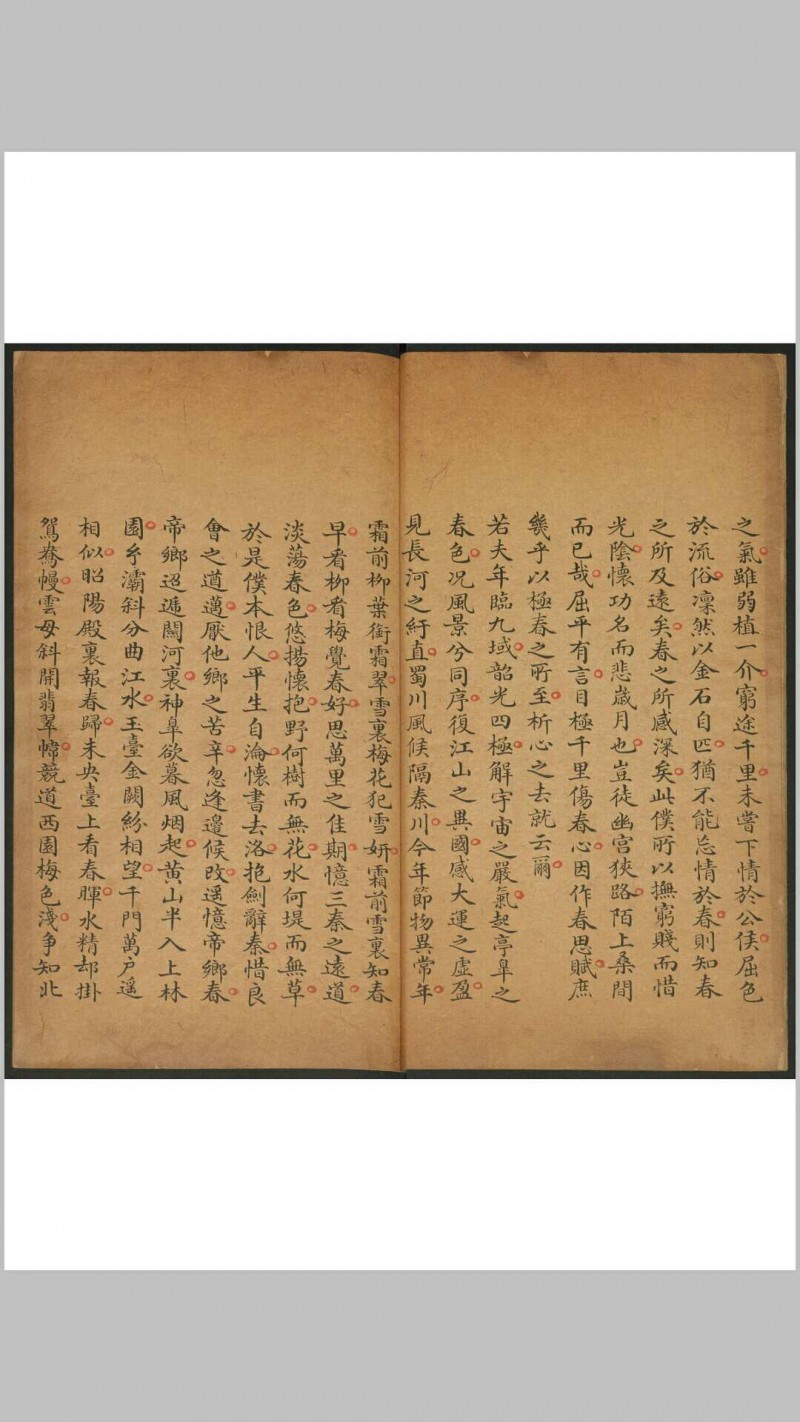 之氣雖弱植一介窮途千里未嘗下情於公侯屈色
於流俗凜然以金石自匹猶不能忘情於春則知春
之所及遠矣春之所感深矣此僕所以撫窮賤而惜
光陰懷功名而悲歲月也豈徒幽宮狹路陌上桑間
而已哉屈平有言目極千里傷春心因作春思賦庶
幾乎以極春之所至析心之去就云爾
若夫年臨九域韶光四極解宇宙之嚴氣起亭皐之
春色况風景兮同序復江山之異國感大運之虛盈
見長河之紆直蜀川風候隔秦川今年節物異常年
霜前柳葉銜霜翠雪裏梅花犯雪妍霜前雪裏知春
早看柳看梅覺春好思萬里之佳期憶三秦之遠道
淡蕩春色悠揚懷抱野何樹而無花水何堤而無草
於是僕本恨人平生自淪懷書去洛抱劍辭秦惜良
會之道邁厭他鄉之苦辛忽逢邊候改遥憶帝鄉春
帝鄉迢遞關河裏神皐欲暮風烟起黄山半入上林
園玄灞斜分曲江水玉臺金闕紛相望千門萬户遥
相似昭陽殿裏報春歸未央臺上看春暉水精却掛
鴛鴦幔雲母斜開翡翠幃競道西園梅色淺爭知北